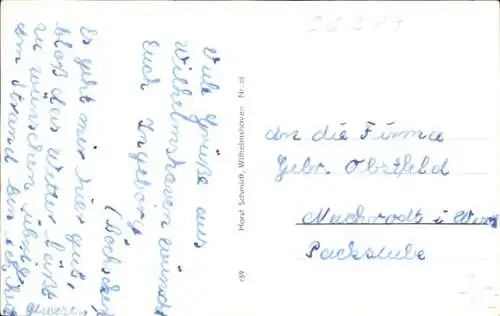 Viele Grüße aus
Wilhelmshaven wünscht
Euch Ingeborg
(Böcksches
Es geht mir hier gut,
bloß das Wetter läßt
zu wünschen übrig.
am Strand bin ich
gewesen
Horst Schmidt, Wilhelmshaven Nr. 38
159
An die Firma
Gebr. Obstfeld
Nachrodt i Westf
Packstube